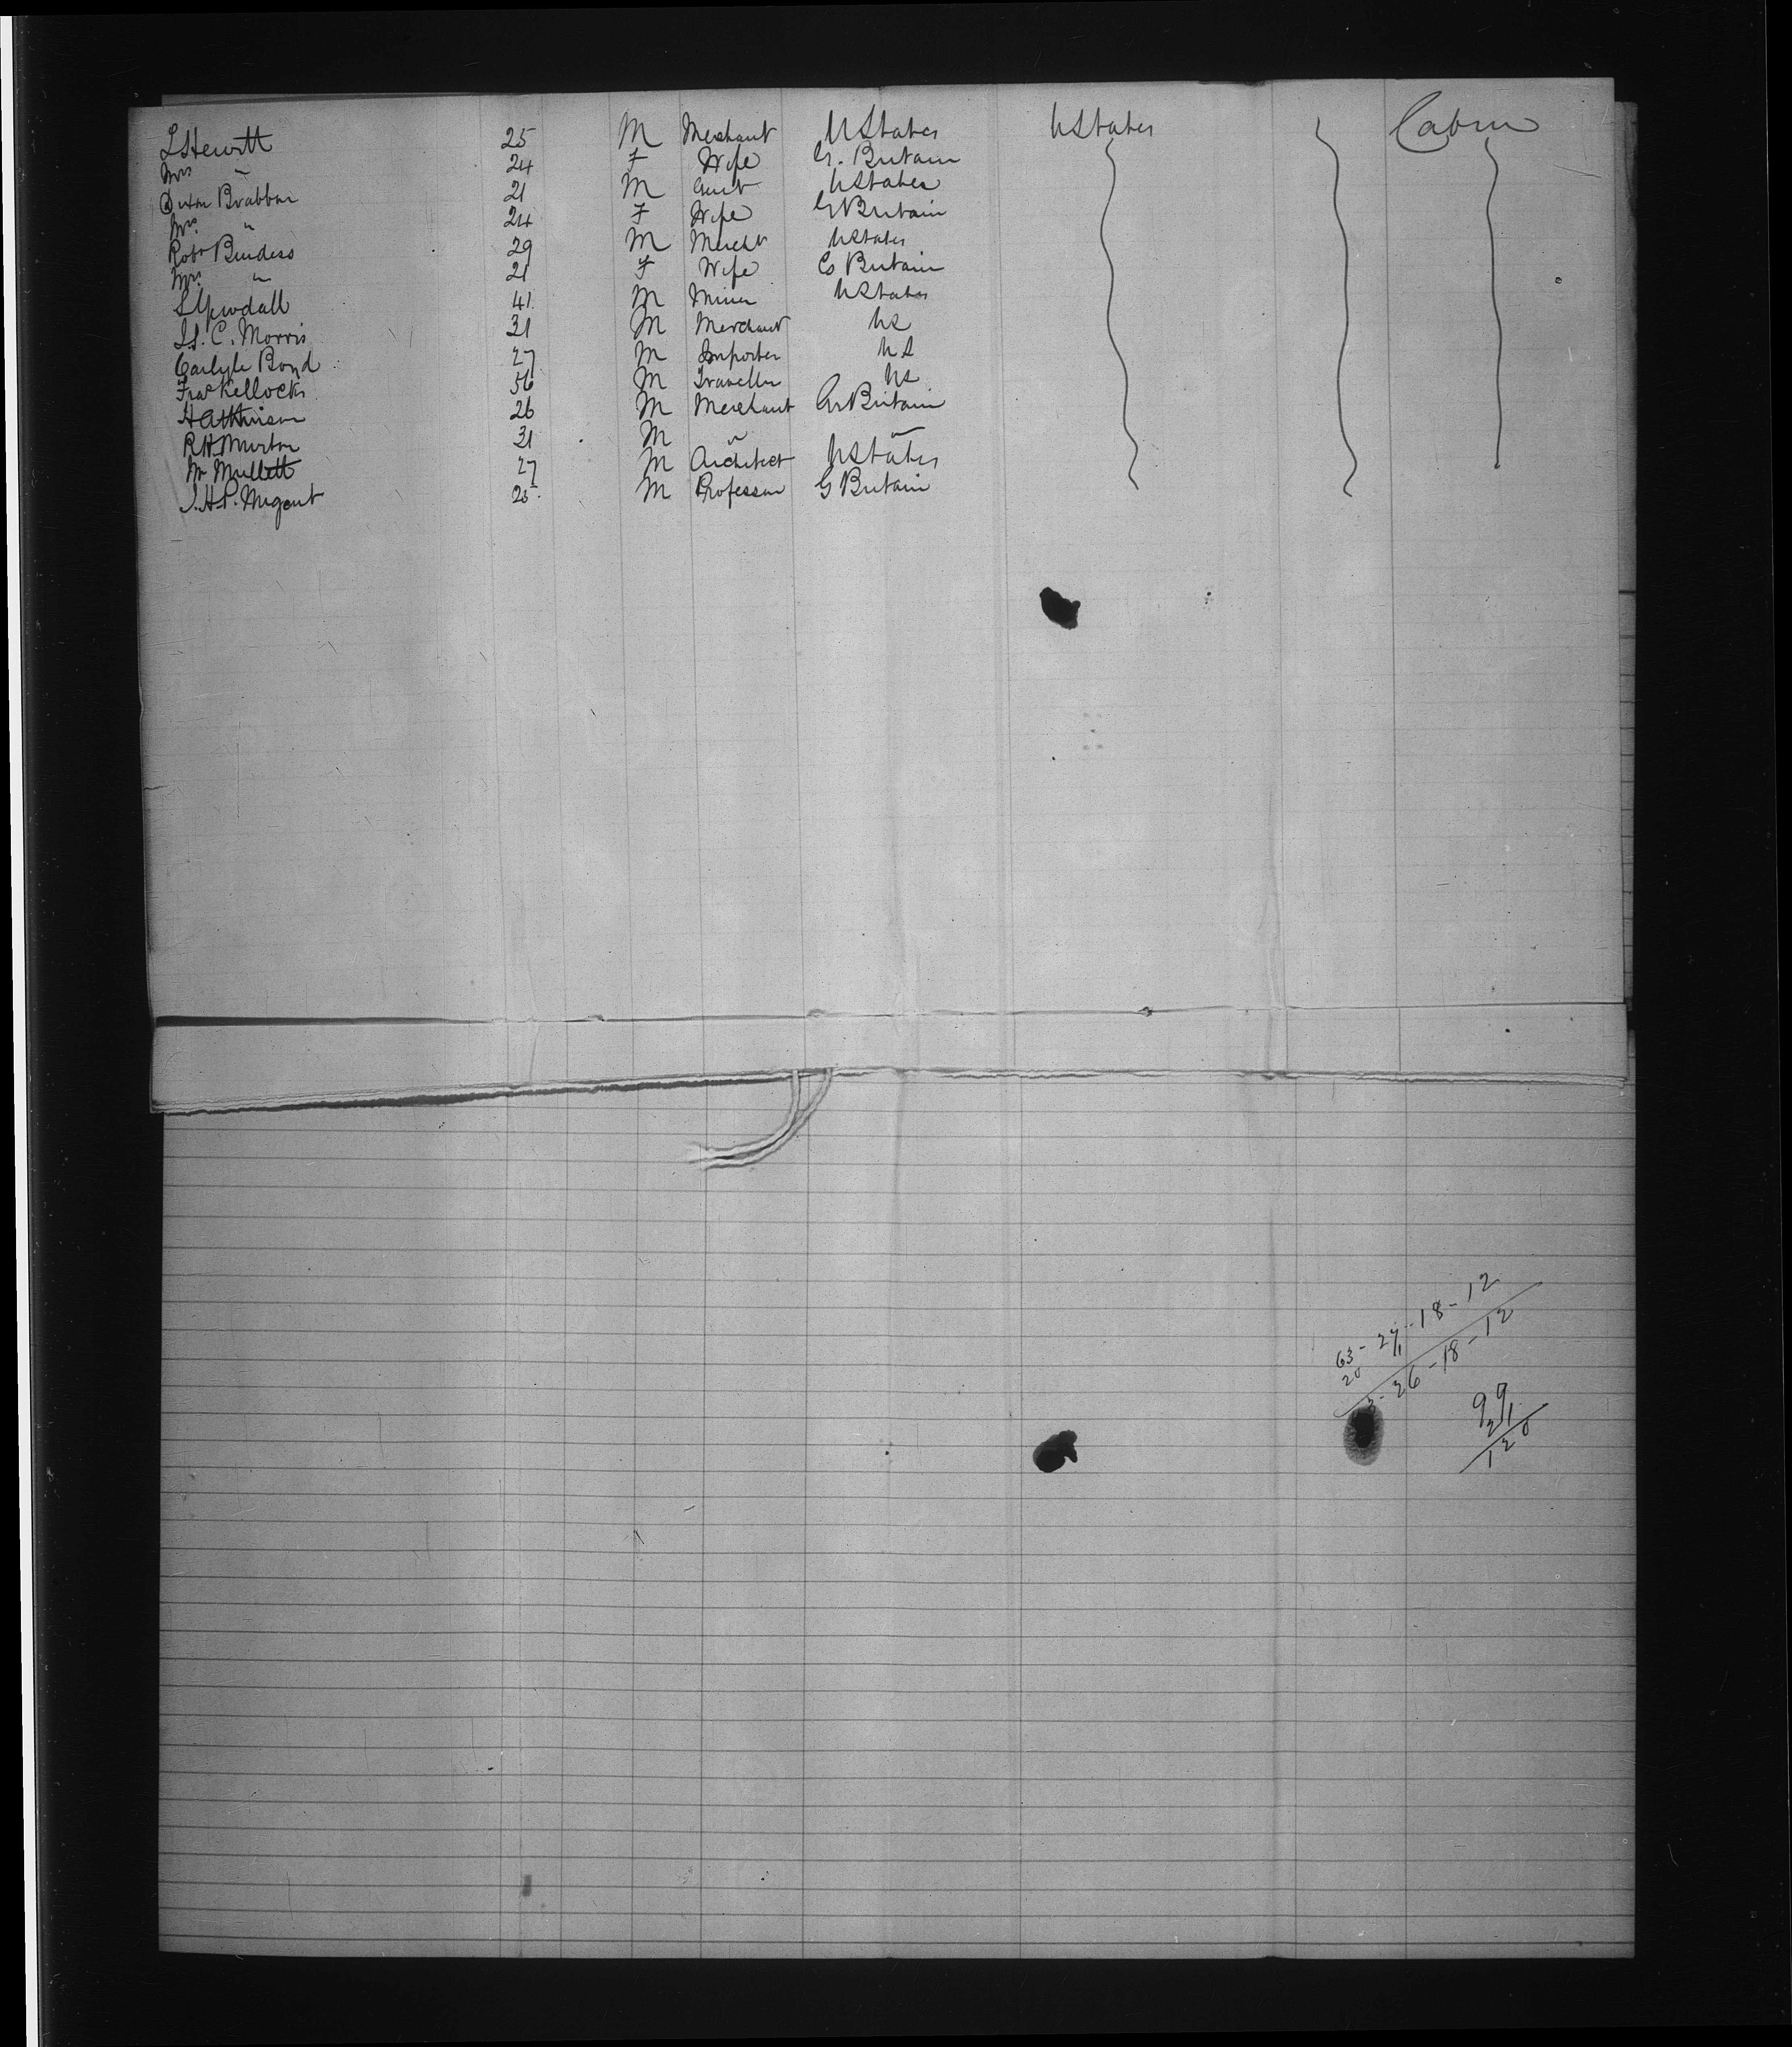 L Hewitt 25 M Merchant U States U States Cabin
Mrs " 24 F Wife Gr. Britain
Dixon Brabban 21 M Gent U States
Mrs. " 24 F Wife Gr Britain
Robt Burdess 29 M Mercht U States
Mrs. " 21 F Wife G Britain
41 M Miner U States
C. Morris 31 M Merchant US
Carlyle Bond 27 M Importer US
Fras Kellock 56 M Traveller US
H Atkinson 26 M Merchant Gr Britain
R H Murton 31 M " "
Mr Mullett 27 M Architect U States
J. H. P. Nugent 25 M Professor G Britain
63 - 27 - 18 - 12
20 1
3 - 26 - 18 - 12
99
21
120